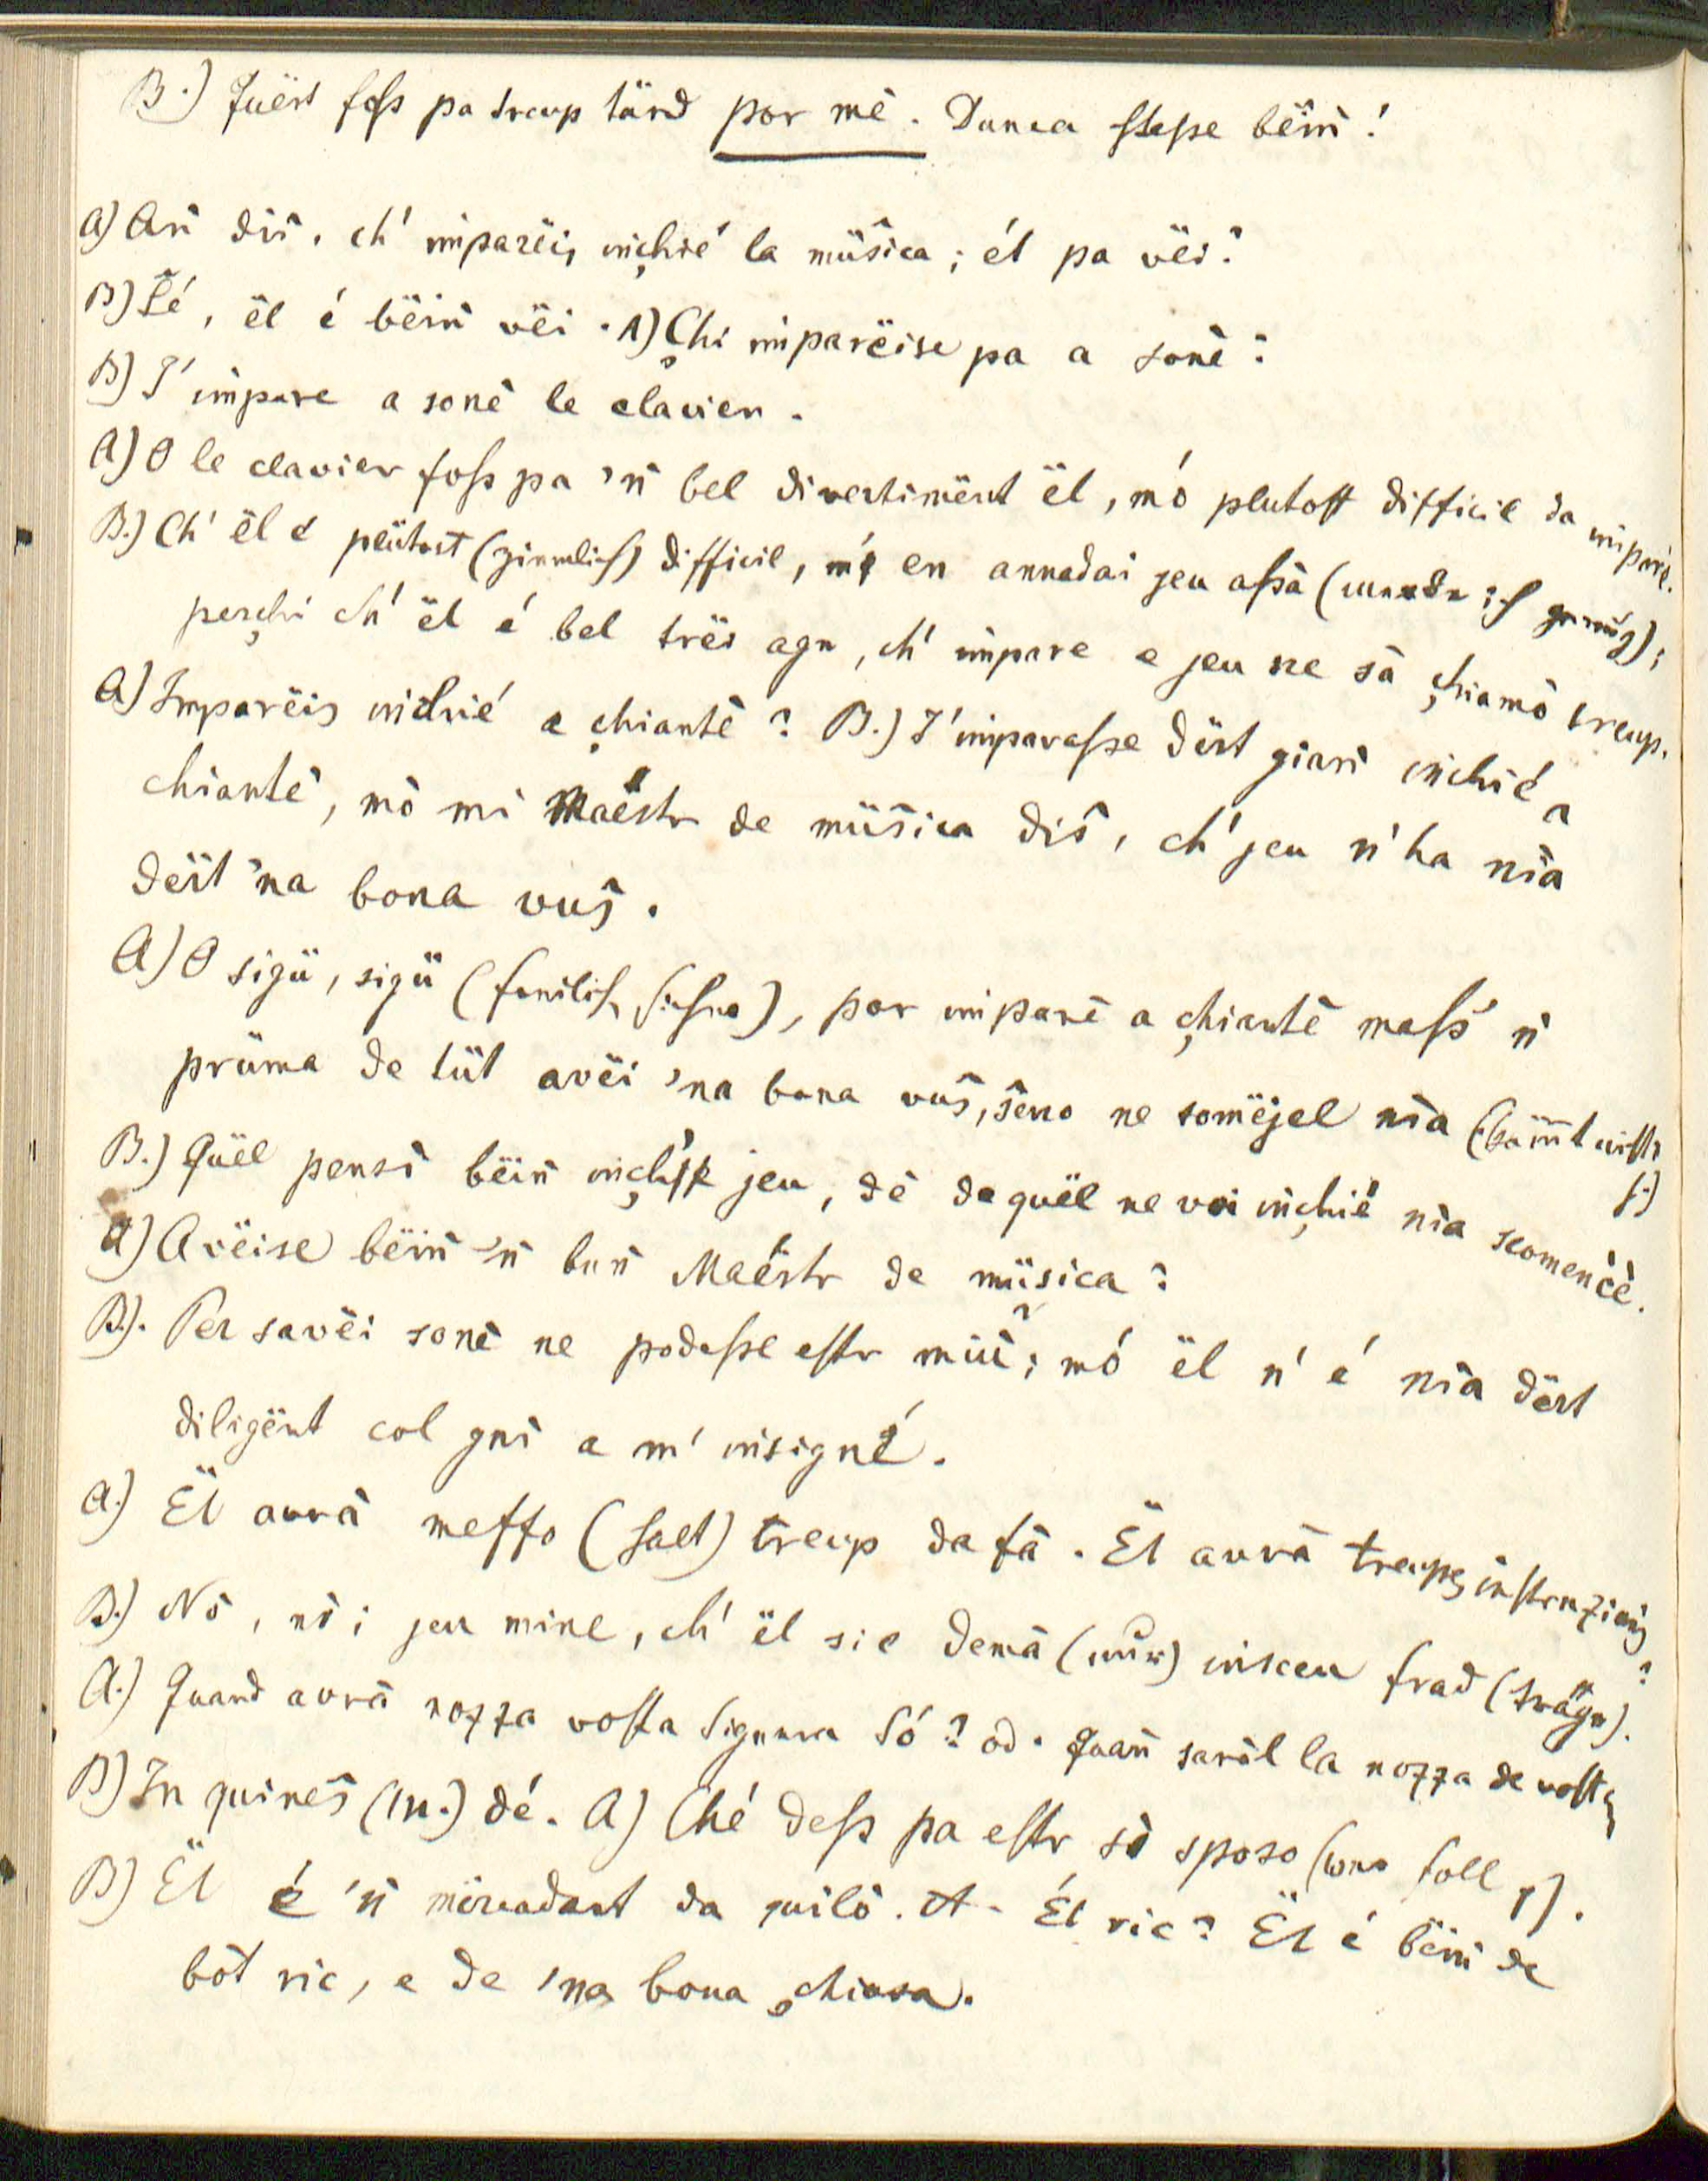 B.) Quëst foss pa treup tärd por mè. Dunca stesse bëiñ!
A) Añ diŝ, ch' imparëis inçhié la müŝica; él pa vëi?
B) Ŝé, ël é bëiñ vëi. A) Çhi imparëise pa a sonè?
B) I' impare a sonè le clavier.
A) O le clavier foss pa 'ñ bel divertimënt ël, mó plutost difficil da imparè.
B.) Ch' ël é plütost (ziemlich) difficil, mè en annadai jeu assà (werde ich gewiß);
perçhi ch' ël é bel trëi agn, ch' impare e jeu ne sà çhiamò treup.
A) Imparëis inchié a çhiantè? B.) I' imparasse dërt giañ inchié a
chiantè, mò mi Maestr de müŝica diŝ, ch' jeu n' ha nia
dërt 'na bona vuŝ.
A) O sigü, sigü (freilich, sicher), por imparè a çhiantè mass' ñ
prüma de tüt avëi 'na bona vuŝ, ŝeno ne somëjel nia (kömmt nichts
f.)
B.) Quël pensi bëiñ inçhié jeu, dè de quël ne voi inçhié nia scomencè.
A) Avëise bëiñ 'ñ buñ Maestr de müsica?
B.). Per savëi sonè ne podesse estr miü; mó ël n' é nia dërt
diligënt col gnì a m' insigné.
A.) Ël avrà meffo (halt) treup da fà. Ël avrà treupes instruziuŋs?
B.) Nò, nò; jeu mine, ch' ël sie demà (nur) insceu frad (träge).
A.) Quand avrà nozza vosta Signura Só? od. Quañ saràl la nozza de vosta
B) In quineŝ (14.) dé. A) Ché dess pa estr sò sposo (wer soll s).
B) Ël é 'ñ mërcadant da quilò. A. Él ric? Ël é bëiñ de
bòt ric, e de 'na bona çhiasa.